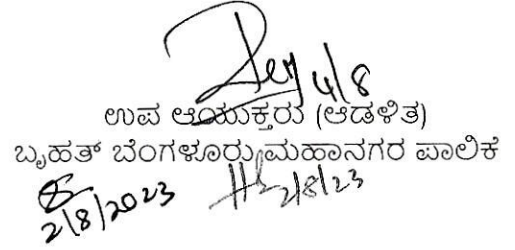 4/8
ಉಪ ಆಯುಕ್ತರು (ಆಡಳಿತ)
ಬೃಹತ್ ಬೆಂಗಳೂರು ಮಹಾನಗರ ಪಾಲಿಕೆ
2/8/2023 2/8/23